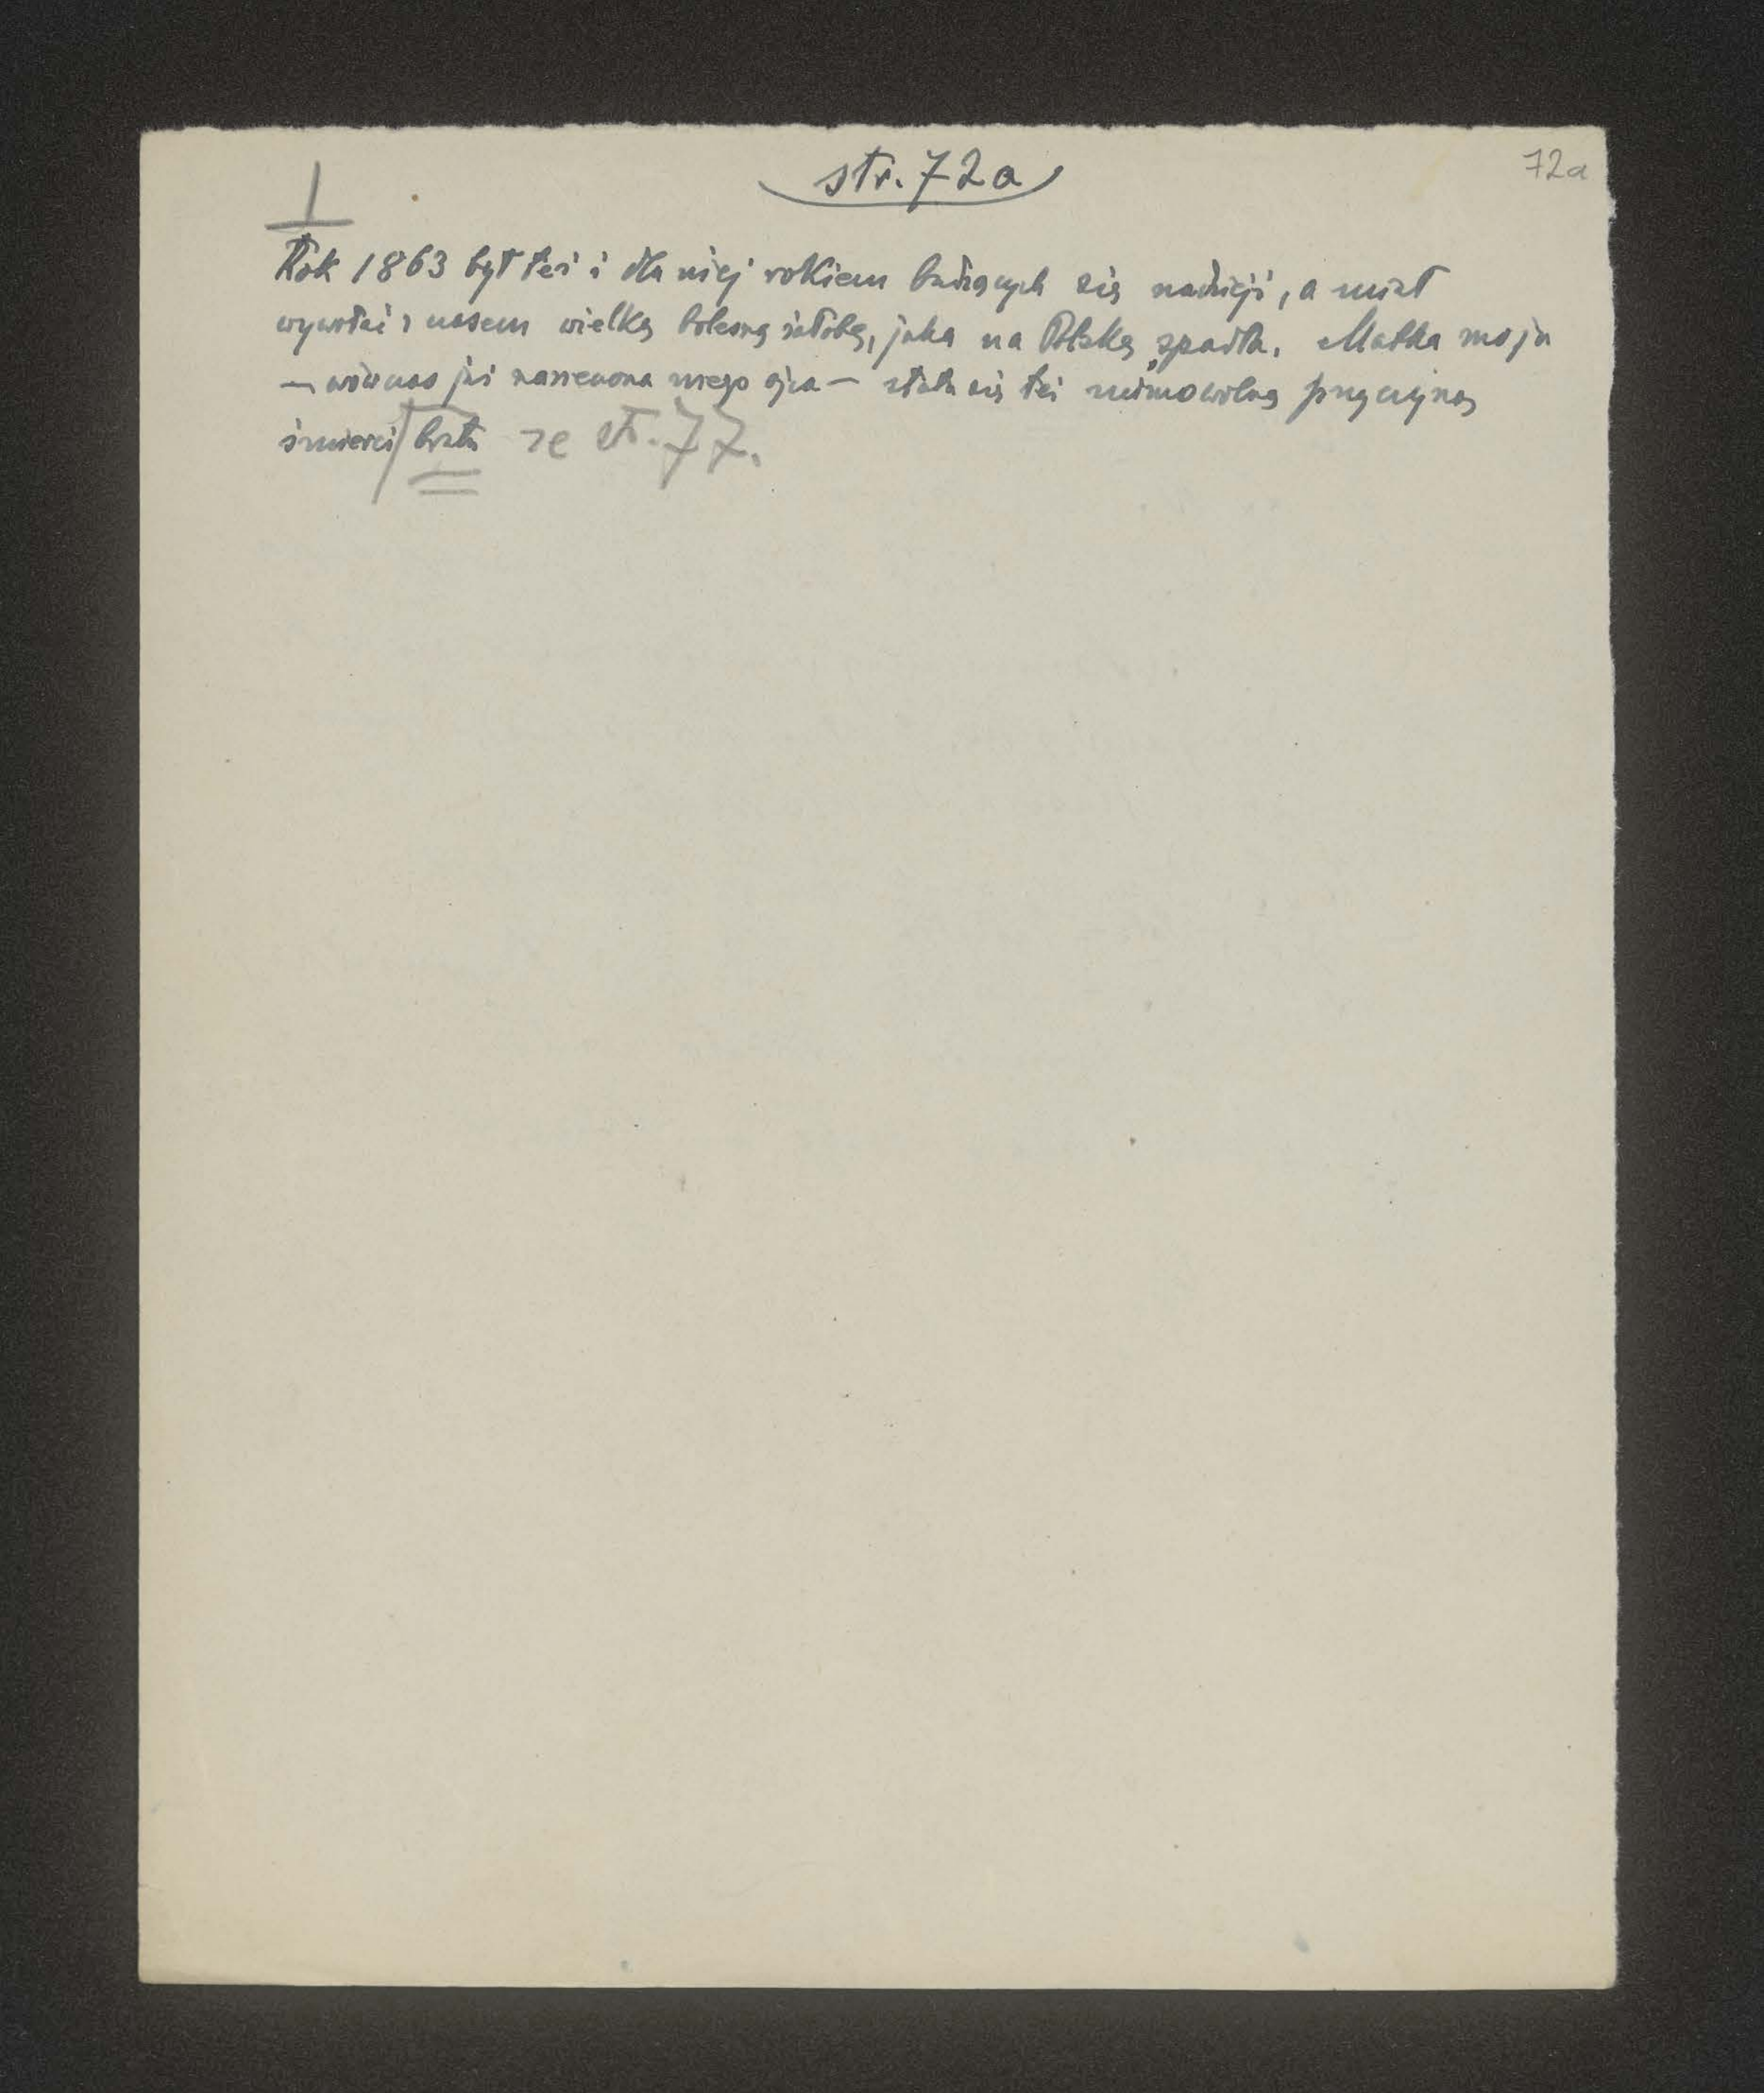 str. 72a
72a
1
Rok 1863 był też i dla niej rokiem budzących się nadzieji, a miał
wywołać z czasem wielką bolesną żałobę, jaka na Polskę spadła. Matka moja
— wówczas już narzeczona mego ojca — stała się też mimowolną przyczyną
śmierci/ brata ze str. 77.